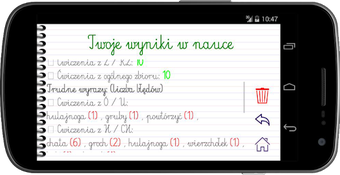 10:47
Twoje wyniki w nauce
Ćwiczenia z Ż / RZ: 10
Ćwiczenia z ogólnego zbioru: 10
Trudne wyrazy: (liczba błędów)
Ćwiczenia z Ó / U:
hulajnoga (1) , gruby (1) , powtórzyć (1) ,
Ćwiczenia z H / CH:
chata (6) , groch (2) , hulajnoga (1) , wierzchołek (1) ,